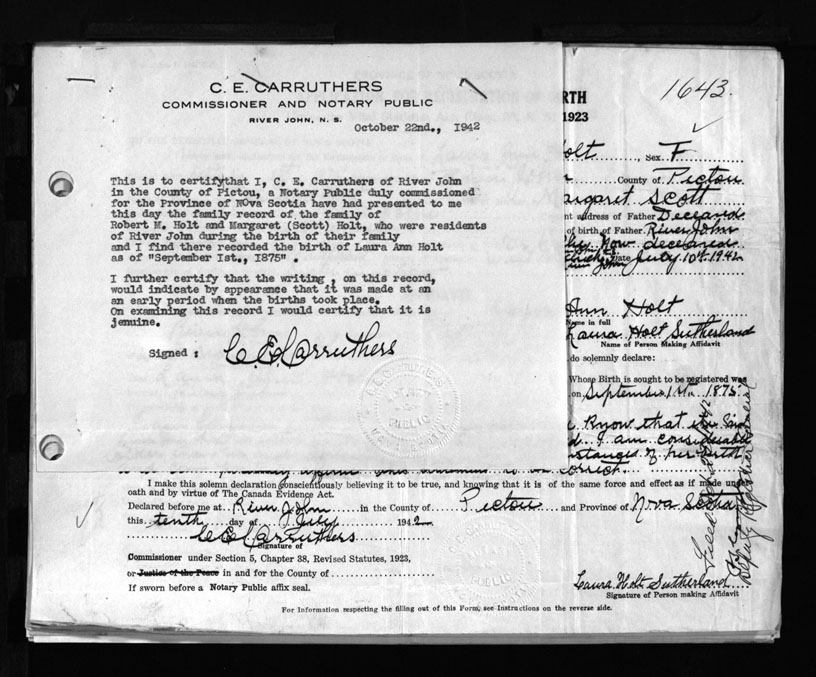 C. E. CARRUTHERS
COMMISSIONER AND NOTARY PUBLIC
RIVER JOHN, N. S.
October 22nd., 1942
This is to certify that I, C. E. Carruthers of River John
in the County of Pictou, a Notary Public duly commissioned
for the Province of Nova Scotia have had presented to me
this day the family record of the family of
Robert M. Holt and Margaret (Scott) Holt, who were residents
of River John during the birth of their family
and I find there recorded the birth of Laura Ann Holt
as of "September 1st., 1875" .
I further certify that the writing , on this record,
would indicate by appearance that it was made at an
an early period when the births took place.
On examining this record I would certify that it is
jenuine.
Signed : C. E. Carruthers
1643.
RTH
1923
olt, Sex F
County of Pictou
argaret Scott
nt address of Father Deceased
of birth of Father River John
Now deceased
Date July 10th 1942
Ann Holt
Name in full
Laura Holt Sutherland
Name of Person Making Affidavit
do solemnly declare:
Whose Birth is sought to be registered was
on September 1st 1875
know that
d I am considerable
stances of her birth
correct.
I make this solemn declaration conscientiously believing it to be true, and knowing that it is of the same force and effect as if made under
oath and by virtue of The Canada Evidence Act.
Declared before me at River John in the County of Pictou and Province of Nova Scotia
this tenth day of July 1942
C. E. Carruthers
Signature of
Commissioner under Section 5, Chapter 38, Revised Statutes, 1923,
or Justice of the Peace in and for the County of
If sworn before a Notary Public affix seal.
Laura Holt Sutherland
Signature of Person making Affidavit
For Information respecting the filling out of this Form, see Instructions on the reverse side.
Deputy Registrar General